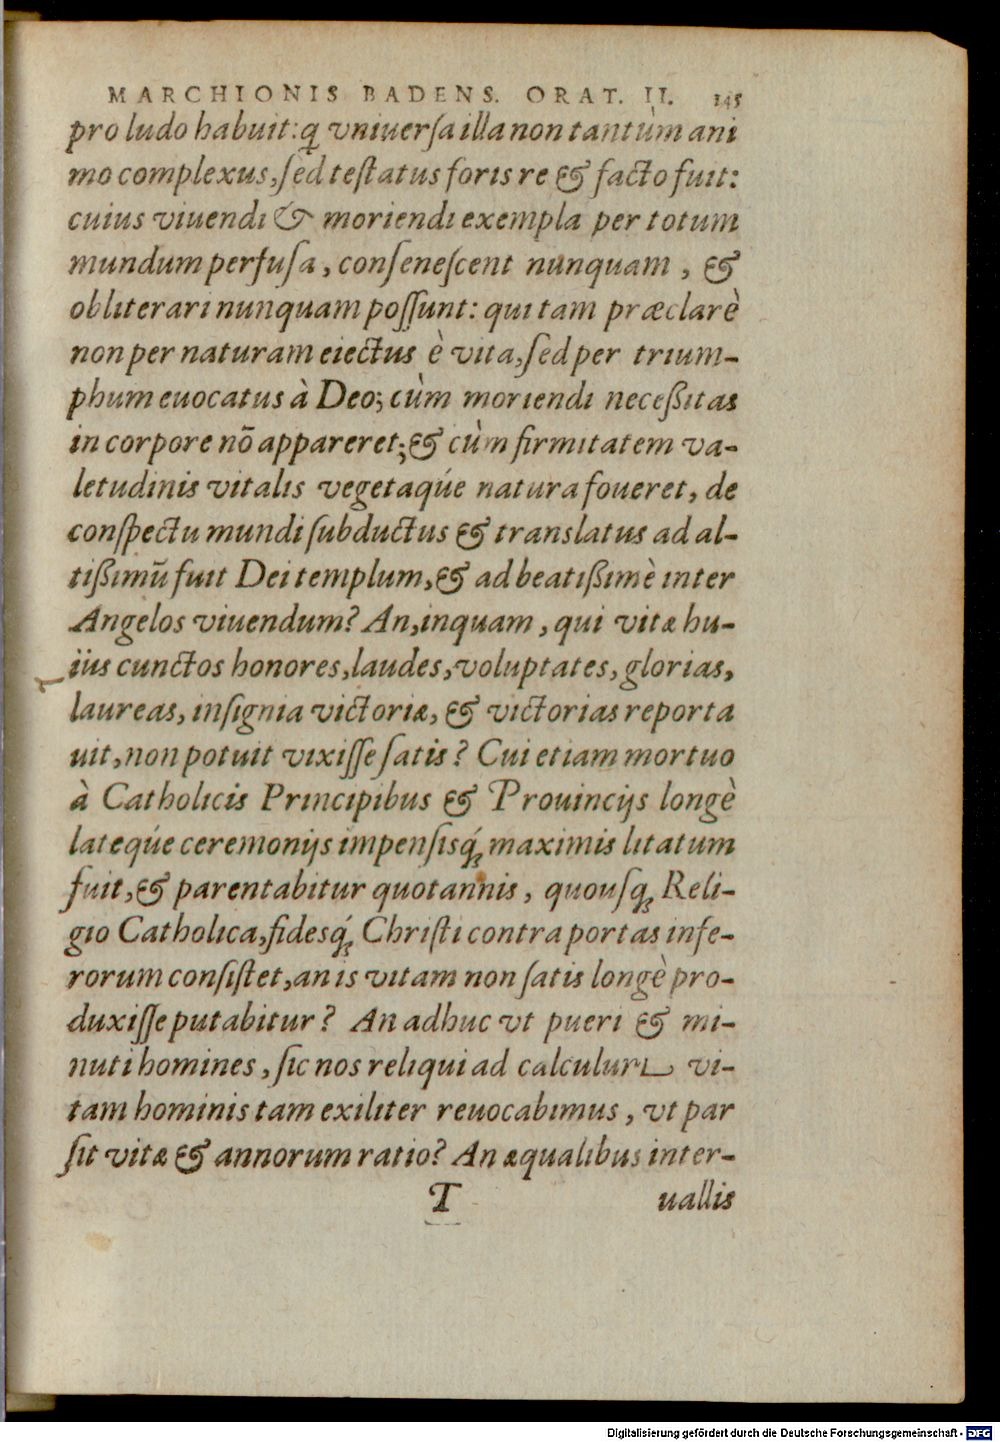 MARCHIONIS BADENS. ORAT. II. 145
pro ludo habuit: ꝗ vniuerſa illa non tantùm ani
mo complexus, ſed teſtatus foris re & facto fuit:
cuius viuendi & moriendi exempla per totum
mundum perfuſa, conſeneſcent nunquam, &
obliterari nunquam poſſunt: qui tam præclarè
non per naturam eiectus è vita, ſed per trium-
phum euocatus à Deo; cùm moriendi neceßitas
in corpore nō appareret; & cùm firmitatem va-
letudinis vitalis vegetaqúe natura foueret, de
conſpectu mundi ſubductus & translatus ad al-
tißimū fuit Dei templum, & ad beatißimè inter
Angelos viuendum? An, inquam, qui vitæ hu-
iùs cunctos honores, laudes, voluptates, glorias,
laureas, inſignia victoriæ, & victorias reporta
uit, non potuit vixiſſe ſatis? Cui etiam mortuo
à Catholicis Principibus & Prouincijs longè
lateqúe ceremonijs impenſisq́ꝫ maximis litatum
fuit, & parentabitur quotannis, quouſqꝫ Reli-
gio Catholica, fidesq́ꝫ Chriſti contra portas infe-
rorum conſiſtet, an is vitam non ſatis longè pro-
duxiſſe putabitur? An adhuc vt pueri & mi-
nuti homines, ſic nos reliqui ad calculum vi-
tam hominis tam exiliter reuocabimus, vt par
ſit vitæ & annorum ratio? An æqualibus inter-
T uallis
Digitalisierung gefördert durch die Deutsche Forschungsgemeinschaft - DFG